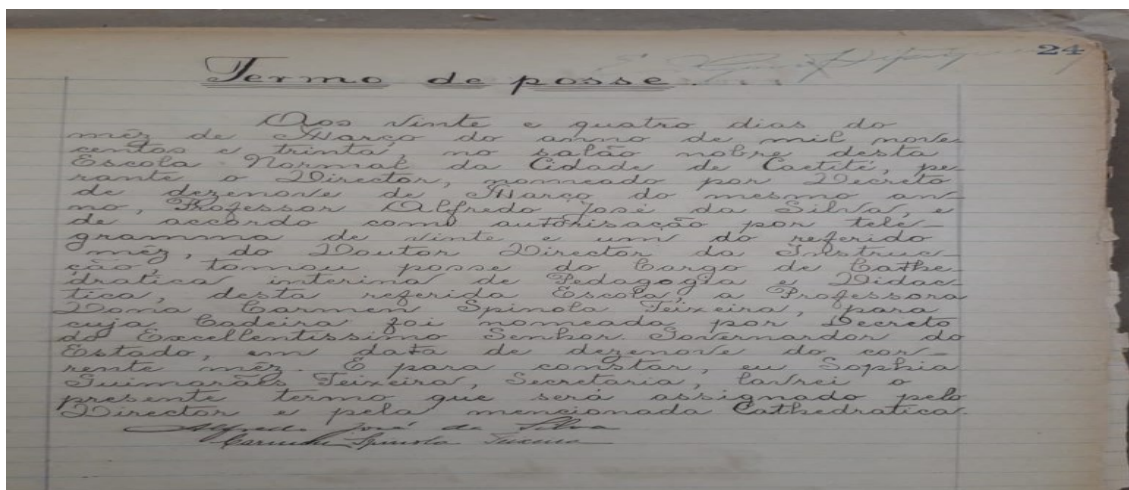 24
Termo de posse
Aos vinte e quatro dias do
mêz de Março do anno de mil nove-
centos e trinta no salão nobre desta
Escola Normal da Cidade de Caetité, pe-
rante o Director, nomeado por Decreto
de dezenove de Março do mesmo an-
no, Professor Alfredo José da Silva, e
de accordo como autorisação por tele-
gramma de vinte e um do referido
mêz, do Doutor Director da Instruc-
ção, tomou posse do Cargo de Cathe-
dratica interina de Pedagogia e Didac-
tica, desta referida Escola, a Professora
Dona Carmen Spinola Teixeira, para
cuja Cadeira foi nomeada por Decreto
do Excellentissimo Senhor Governardor do
Estado, em data de dezenove do cor-
rente mêz. E para constar, eu Sophia
Guimarães Teixeira, Secretaria, lavrei o
presente termo que será assignado pelo
Director e pela mencionada Cathedratica.
Alfredo José da Silva
Carmen Spinola Teixeira